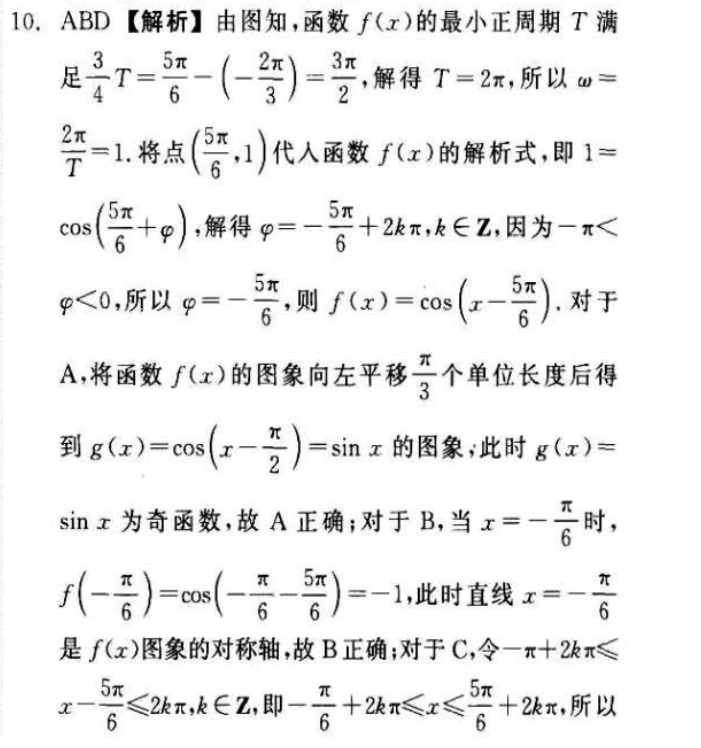 10. ABD【解析】由图知,函数 f(x)的最小正周期 T 满
足$\frac{3}{4}T=\frac{5π}{6}-\left(-\frac{2π}{3}\right)=\frac{3π}{2}$,解得 T=2π,所以 ω=
$\frac{2π}{T}=1$.将点$\left(\frac{5π}{6},1\right)$代入函数 f(x)的解析式,即 1=
$\cos\left(\frac{5π}{6}+φ\right)$,解得 $φ=-\frac{5π}{6}+2kπ,k∈\mathbf{Z}$,因为-π<
φ<0,所以 $φ=-\frac{5π}{6}$,则 $f(x)=\cos\left(x-\frac{5π}{6}\right)$.对于
A,将函数 f(x)的图象向左平移$\frac{π}{3}$个单位长度后得
到 $g(x)=\cos\left(x-\frac{π}{2}\right)=\sin x$ 的图象,此时 g(x)=
sin x 为奇函数,故 A 正确;对于 B,当 $x=-\frac{π}{6}$时,
$f\left(-\frac{π}{6}\right)=\cos\left(-\frac{π}{6}-\frac{5π}{6}\right)=-1$,此时直线 $x=-\frac{π}{6}$
是 f(x)图象的对称轴,故 B 正确;对于 C,令-π+2kπ≤
$x-\frac{5π}{6}≤2kπ,k∈\mathbf{Z}$,即$-\frac{π}{6}+2kπ≤x≤\frac{5π}{6}+2kπ$,所以